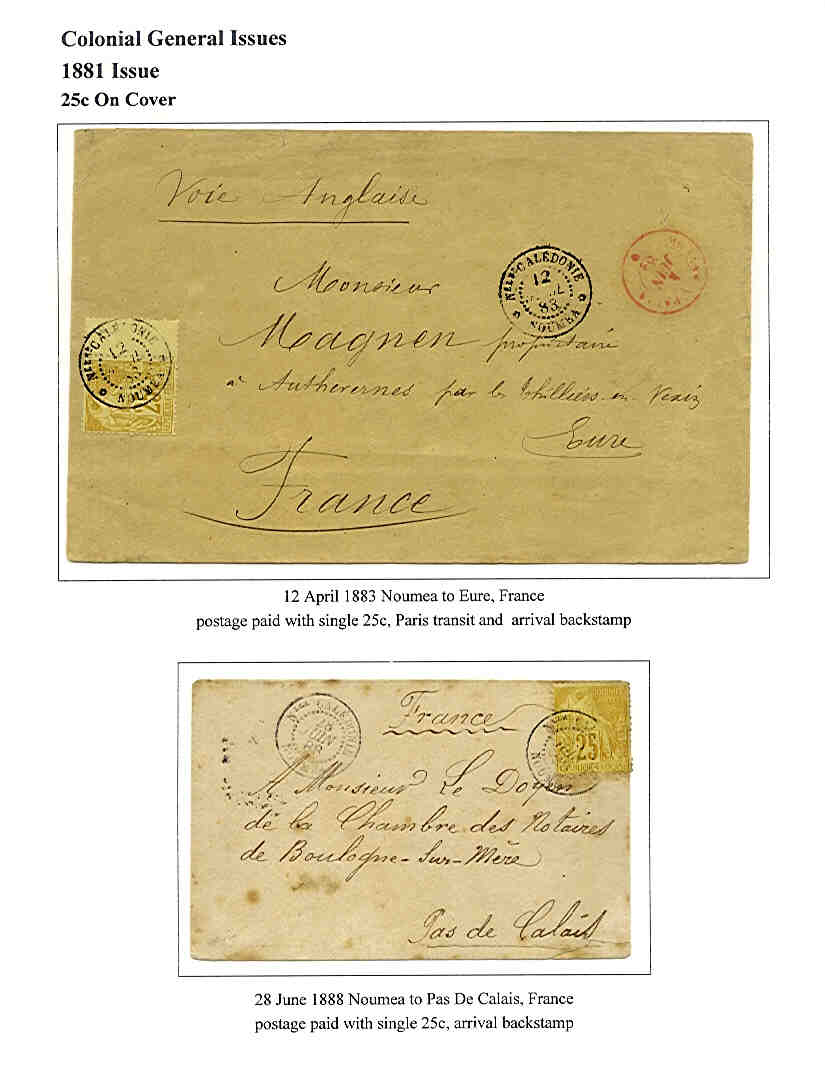 Colonial General Issues
1881 Issue
25c On Cover
Voie Anglaise
Nlle CALÉDONIE
12
83
NOUMÉA
Monsieur
Magnen propriétaire
à Authevernes par les Thilliers-en-Vexin
Eure
France
Nlle CALÉDONIE
12
NOUMÉA
12 April 1883 Noumea to Eure, France
postage paid with single 25c, Paris transit and arrival backstamp
Nlle CALÉDONIE
JUIN
88
France
25
A Monsieur Le Doyen
de la Chambre des Notaires
de Boulogne-Sur-Mère
Pas de Calais
28 June 1888 Noumea to Pas De Calais, France
postage paid with single 25c, arrival backstamp